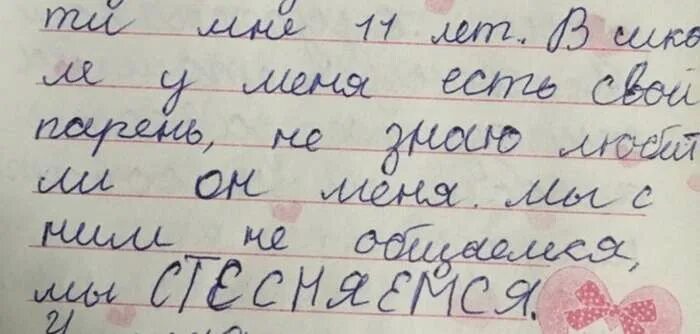 ти мне 11 лет. В шко
ле у меня есть свой
парень, не знаю любит
ли он меня. мы с
ним не общаемся,
мы СТЕСНЯЕМСЯ.